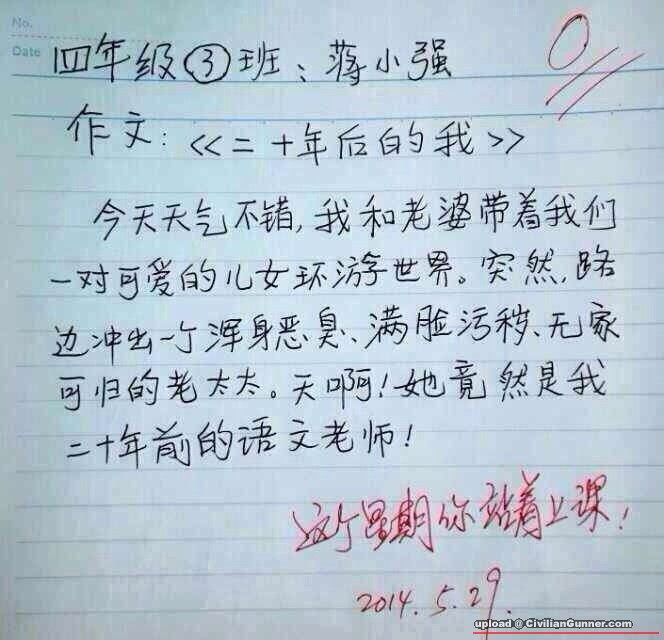 No.
Date
0
四年级③班：蒋小强
作文：《二十年后的我》
今天天气不错,我和老婆带着我们
一对可爱的儿女环游世界。突然,路
边冲出一个浑身恶臭、满脸污秽、无家
可归的老太太。天啊！她竟然是我
二十年前的语文老师！
这个星期你站着上课！
2014.5.29.
upload @ CivilianGunner.com